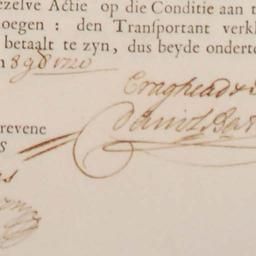 ezelve Actie op die Conditie aan t
oegen : den Transportant verkl
betaalt te zyn, dus beyde onderte
n 8 9b 1720
Craghead &
Daniel
revene
s